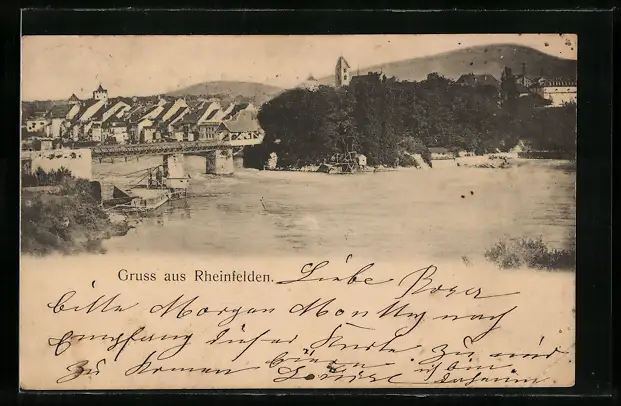 Gruss aus Rheinfelden.
Liebe
bitte Morgen Montag nach
Empfang dieser Karte zu mir
zu komen